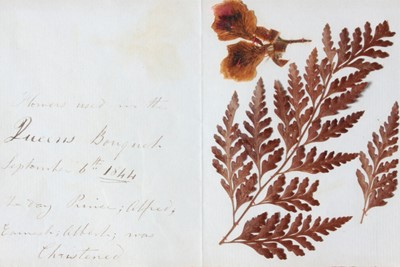 Flowers used in the
Queens Bouquet
September 6th 1844
day Prince, Alfred,
Ernest, Albert, was
Christened